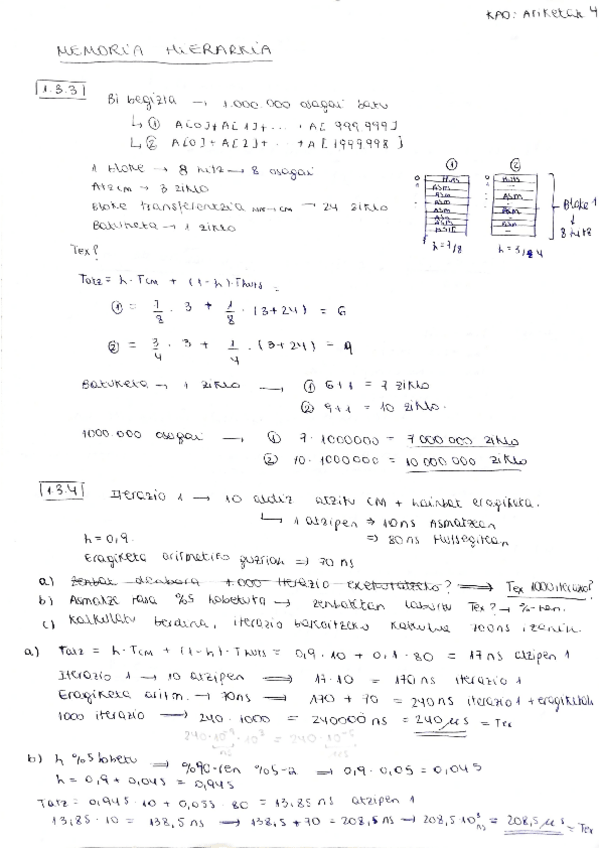 KAO: Ariketak 4
MEMORIA HIERARKIA
1.3.3
Bi begizta → 1.000.000 osagai batu
↳ ① A[0]+A[1]+ ... + A[999999]
↳ ② A[0]+A[2]+ ... +A[1999998]
1 bloke → 8 hitz → 8 osagai
Atz CM → 3 ziklo
Bloke transferentzia → CM → 24 ziklo
Batuketa → 1 ziklo
① ②
Bloke 1
8 hitz
h = 7/8 h = 3/4
Tex?
Tatz = h · Tcm + (1-h) · Thuts =
① = 7/8 · 3 + 1/8 · (3+24) = 6
② = 3/4 · 3 + 1/4 · (3+24) = 9
Batuketa → 1 ziklo → ① 6+1 = 7 ziklo
② 9+1 = 10 ziklo.
1000.000 osagai → ① 7 · 1000000 = 7000 000 ziklo
② 10 · 1000000 = 10 000 000 ziklo
1.3.4
Iterazio 1 → 10 aldiz atzitu CM + hainbat eragiketa.
↳ 1 atzipen ⇒ 10ns Asmatzean
⇒ 80ns Hutsegitean
h = 0,9.
Eragiketa aritmetiko guztiak ⇒ 70 ns
a) zenbat denbora 1.000 iterazio exekutatzeko? ⇒ Tex 1000 iterazio?
b) Asmatze tasa %5 hobetuta → zenbatetan laburtu Tex? → %-tan.
c) Kalkulatu berdina, iterazio bakoitzeko kalkulua 700ns izanik.
a) Tatz = h · Tcm + (1-h) · Thuts = 0,9 · 10 + 0,1 · 80 = 17 ns atzipen 1
Iterazio 1 → 10 atzipen ⇒ 17 · 10 = 170 ns iterazio 1
Eragiketa aritm. → 70ns → 170 + 70 = 240 ns iterazio 1 + eragiketak
1000 iterazio → 240 · 1000 = 240000 ns = 240 μs = Tex
b) h %5 hobetu ⇒ %90-ren %5-a ⇒ 0,9 · 0,05 = 0,045
h = 0,9 + 0,045 = 0,945
Tatz = 0,945 · 10 + 0,055 · 80 = 13,85 ns atzipen 1
13,85 · 10 = 138,5 ns → 138,5 + 70 = 208,5 ns → 208,5 · 10³ ns = 208,5 μs = Tex